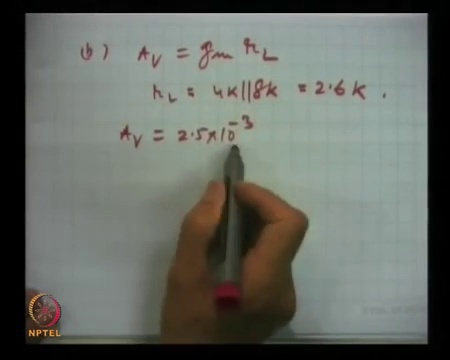 (b) Av = gm rL
rL = 4k||8k = 2.6k.
Av = 2.5x10^-3
NPTEL